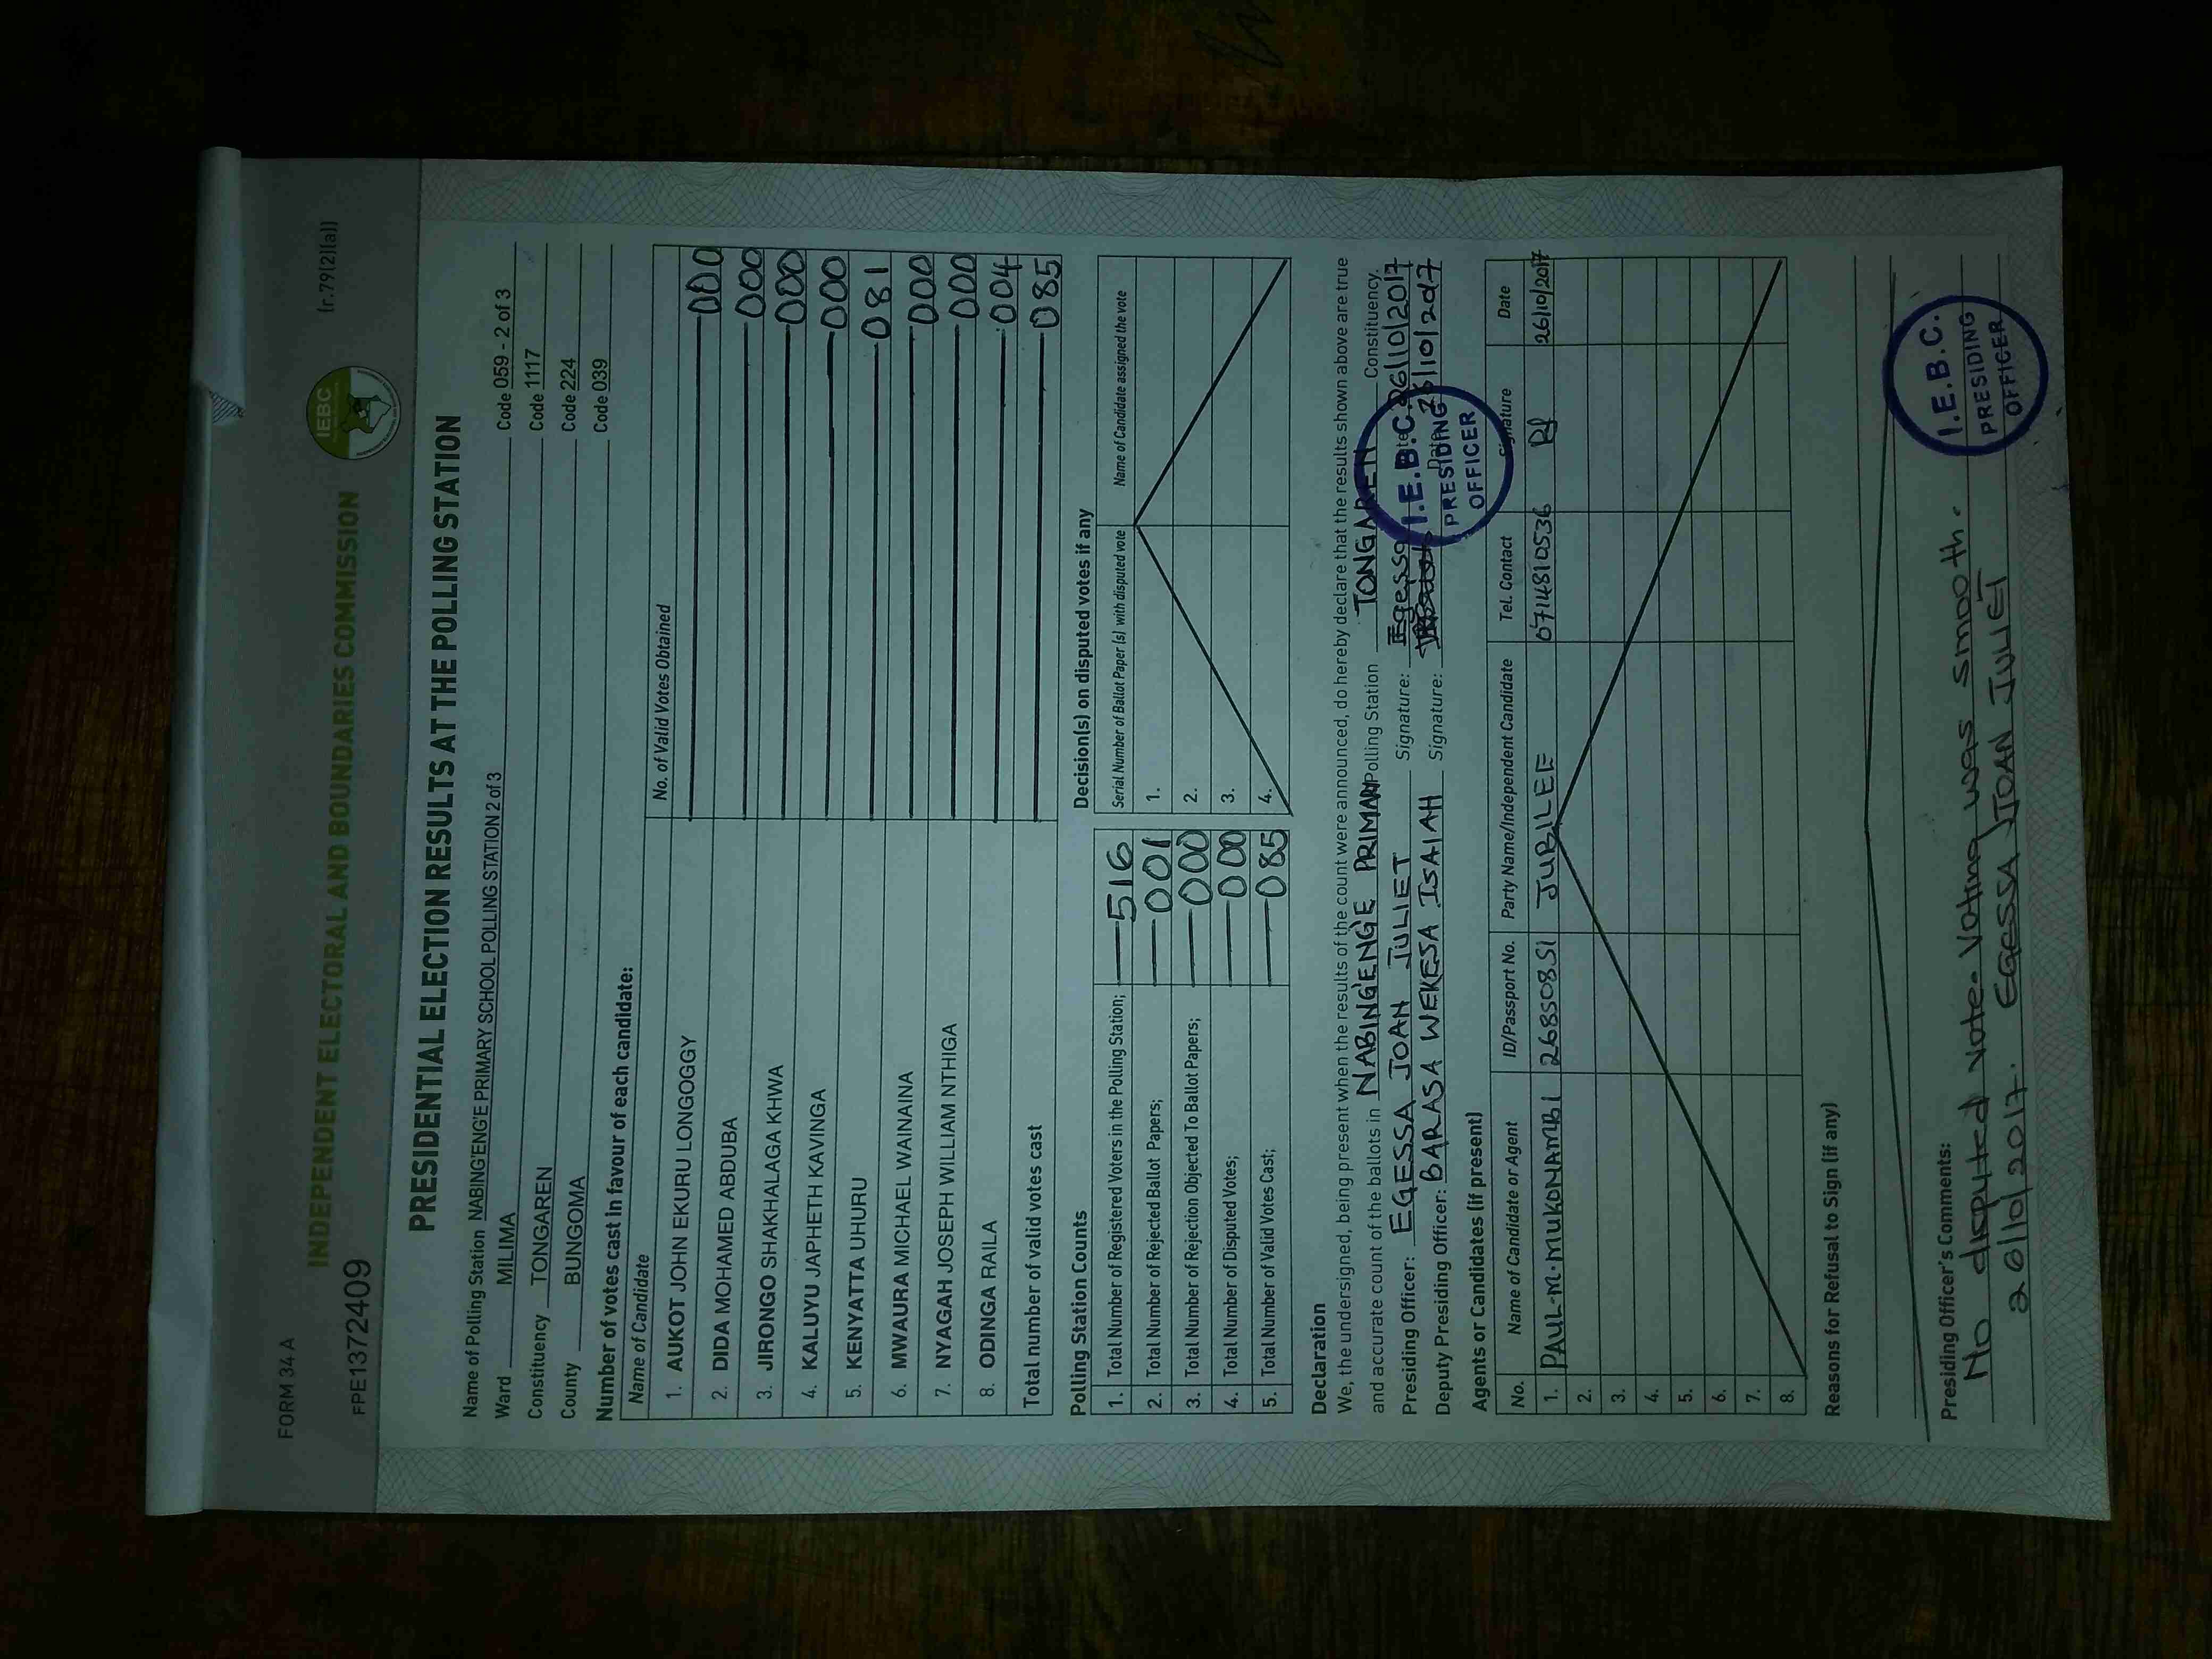 FORM 34 A
(r.79(2)(a))
IEBC
INDEPENDENT ELECTORAL AND BOUNDARIES COMMISSION
FPE1372409
PRESIDENTIAL ELECTION RESULTS AT THE POLLING STATION
Name of Polling Station NABING'ENG'E PRIMARY SCHOOL POLLING STATION 2 of 3 Code 059 - 2 of 3
Ward MILIMA Code 1117
Constituency TONGAREN Code 224
County BUNGOMA Code 039
Number of votes cast in favour of each candidate:
Name of Candidate No. of Valid Votes Obtained
1. AUKOT JOHN EKURU LONGOGGY 000
2. DIDA MOHAMED ABDUBA 000
3. JIRONGO SHAKHALAGA KHWA 000
4. KALUYU JAPHETH KAVINGA 000
5. KENYATTA UHURU 081
6. MWAURA MICHAEL WAINAINA 000
7. NYAGAH JOSEPH WILLIAM NTHIGA 000
8. ODINGA RAILA 004
Total number of valid votes cast 085
Polling Station Counts
1. Total Number of Registered Voters in the Polling Station; 516
2. Total Number of Rejected Ballot Papers; 001
3. Total Number of Rejection Objected To Ballot Papers; 000
4. Total Number of Disputed Votes; 000
5. Total Number of Valid Votes Cast; 085
Decision(s) on disputed votes if any
Serial Number of Ballot Paper (s) with disputed vote Name of Candidate assigned the vote
1.
2.
3.
4.
Declaration
We, the undersigned, being present when the results of the count were announced, do hereby declare that the results shown above are true
and accurate count of the ballots in NABINGENGE PRIMARY Polling Station TONGAREN Constituency.
Presiding Officer: EGESSA JOAN JULIET Signature: Egessa Date 26/10/2017
Deputy Presiding Officer: BARASA WEKESA ISAIAH Signature: Date 26/10/2017
I.E.B.C.
PRESIDING
OFFICER
Agents or Candidates (if present)
No. Name of Candidate or Agent ID/Passport No. Party Name/Independent Candidate Tel. Contact Signature Date
1. PAUL-M-MUKONAMBI 26850851 JUBILEE 0714810536 26/10/2017
2.
3.
4.
5.
6.
7.
8.
Reasons for Refusal to Sign (if any)
Presiding Officer's Comments:
No disputed vote. Voting was smooth.
26/10/2017. EGESSA JOAN JULIET
I.E.B.C.
PRESIDING
OFFICER